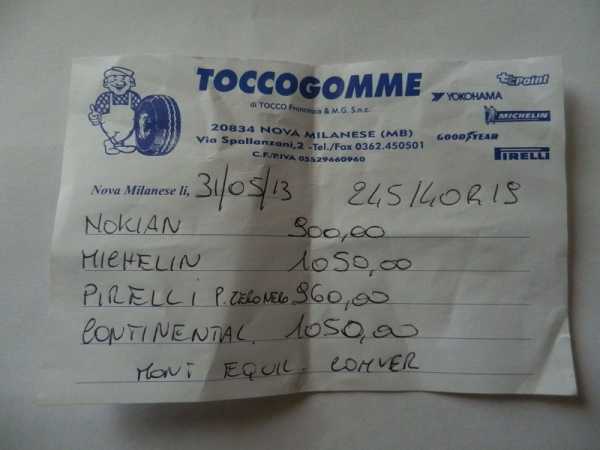 TOCCOGOMME
di TOCCO Francesco & M.G. S.n.c.
20834 NOVA MILANESE (MB)
Via Spallanzani,2 -Tel./Fax 0362.450501
C.F./P.IVA 05529660960
Point
YOKOHAMA
MICHELIN
GOODYEAR
PIRELLI
Nova Milanese li, 31/05/13 245/40R19
NOKIAN 900,00
MICHELIN 1050,00
PIRELLI P. ZERO NERO 960,00
CONTINENTAL. 1050,00
MONT EQUIL. CONVER